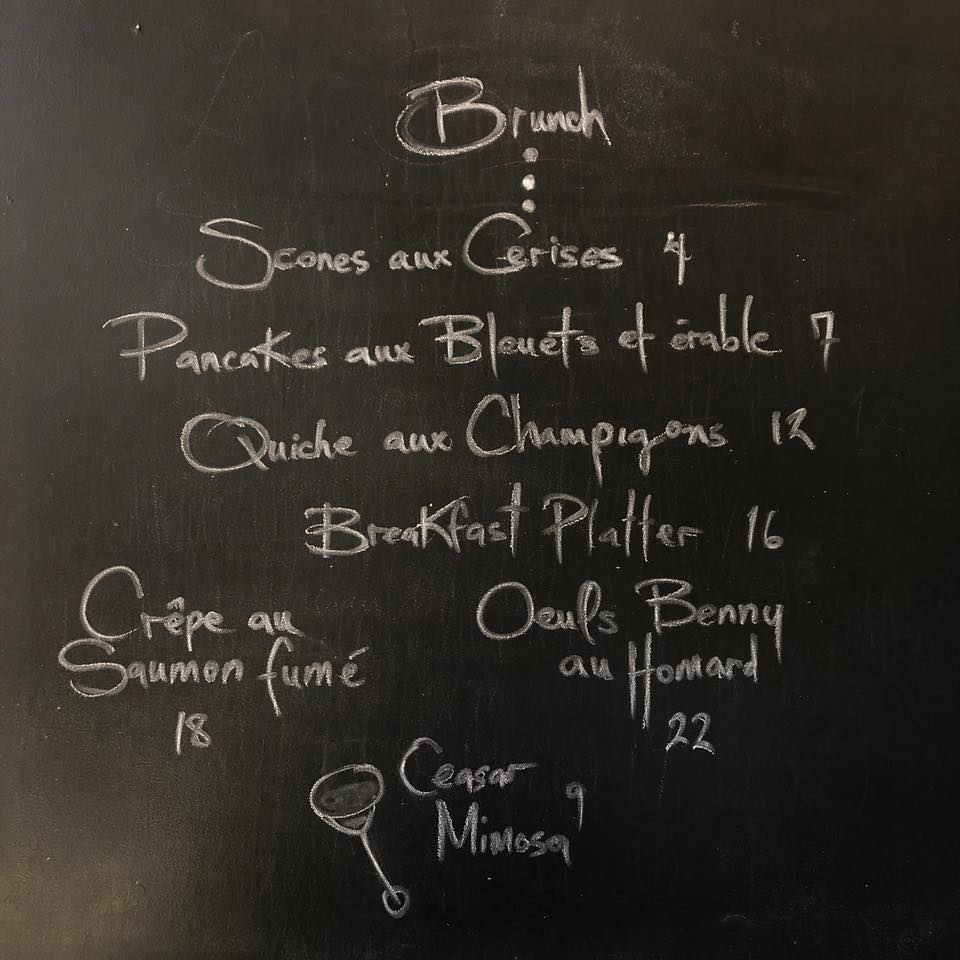 Brunch
Scones aux Cerises 4
Pancakes aux Bleuets et érable 7
Quiche aux Champignons 12
Breakfast Platter 16
Crêpe au
Saumon fumé
18
Oeufs Benny
au Homard
22
Ceasar 9
Mimosa